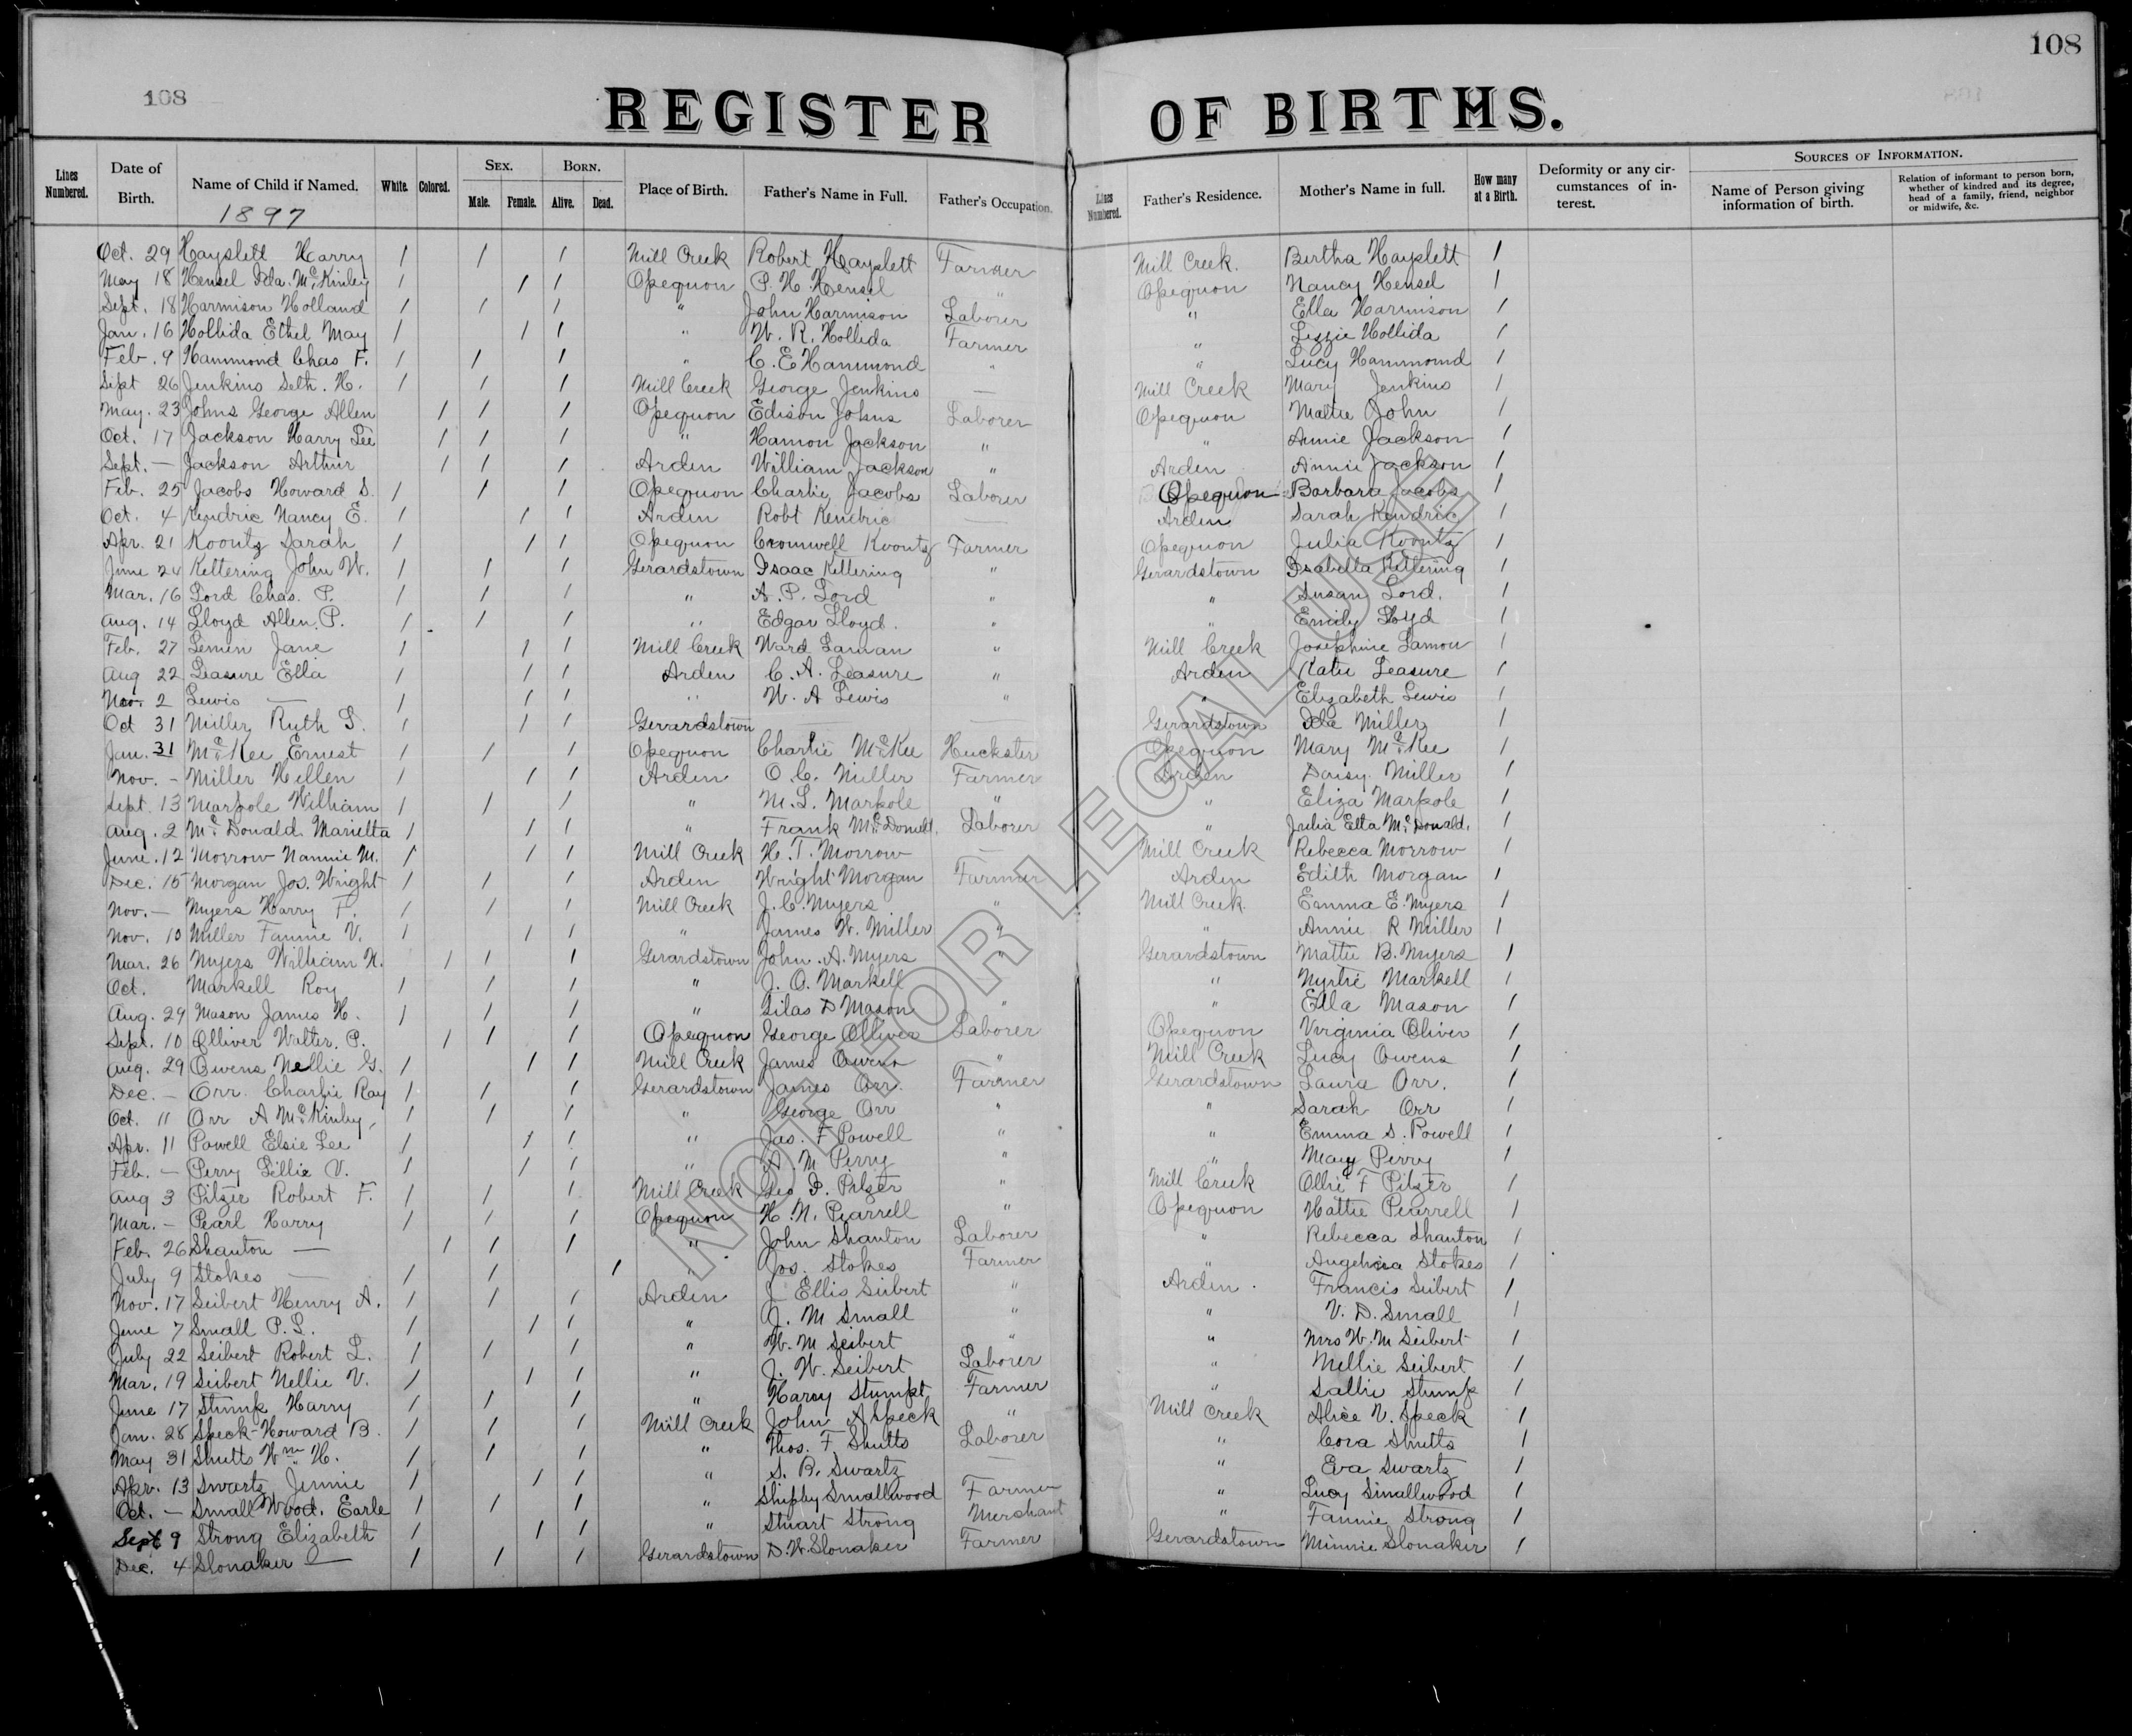 108
108
REGISTER OF BIRTHS.
Lines Numbered. Date of Birth. Name of Child if Named. White. Colored. Sex. Male. Female. Born. Alive. Dead. Place of Birth. Father's Name in Full. Father's Occupation. Lines Numbered. Father's Residence. Mother's Name in full. How many at a Birth. Deformity or any circumstances of interest. Sources of Information. Name of Person giving information of birth. Relation of informant to person born, whether of kindred and its degree, head of a family, friend, neighbor or midwife, &c.
1897
Oct. 29 Hayslett Harry 1 1 1 Mill Creek Robert Hayslett Farmer Mill Creek. Bertha Hayslett 1
May 18 Hensel Ida McKinley 1 1 1 Opequon P. H. Hensel " Opequon Nancy Hensel 1
Sept. 18 Harmison Holland 1 1 1 " John Harmison Laborer " Ella Harmison 1
Jan. 16 Hollida Ethel May 1 1 1 " W. R. Hollida Farmer " Lizzie Hollida 1
Feb. 9 Hammond Chas F. 1 1 1 " C. E Hammond " " Lucy Hammond 1
Sept 26 Jenkins Seth. H. 1 1 1 Mill Creek George Jenkins — Mill Creek Mary Jenkins 1
May. 23 Johns George Allen 1 1 1 Opequon Edison Johns Laborer Opequon Mattie John 1
Oct. 17 Jackson Harry Lee 1 1 1 " Hamon Jackson " " Annie Jackson 1
Sept. — Jackson Arthur 1 1 1 Arden William Jackson " Arden Annie Jackson 1
Feb. 25 Jacobs Howard S. 1 1 1 Opequon Charlie Jacobs Laborer Opequon Barbara Jacobs 1
Oct. 4 Kendric Nancy E. 1 1 1 Arden Robt Kendric — Arden Sarah Kendric 1
Apr. 21 Koontz Sarah 1 1 1 Opequon Cromwell Koontz Farmer Opequon Julia Koontz 1
June 24 Kettering John W. 1 1 1 Gerardstown Isaac Kettering " Gerardstown Isabella Kettering 1
Mar. 16 Lord Chas. P. 1 1 1 " A. P. Lord " " Susan Lord. 1
Aug. 14 Lloyd Allen. P. 1 1 1 " Edgar Lloyd. " " Emily Loyd 1
Feb. 27 Lemen Jane 1 1 1 Mill Creek Ward Laman " Mill Creek Josephine Lamon 1
Aug 22 Leasure Ella 1 1 1 Arden C. A. Leasure " Arden Katie Leasure 1
Nov. 2 Lewis — 1 1 1 " W. A Lewis " " Elizabeth Lewis 1
Oct 31 Miller Ruth L. 1 1 1 Gerardstown — — Gerardstown Ida Miller 1
Jan. 31 McKee Ernest 1 1 1 Opequon Charlie McKee Huckster Opequon Mary McKee 1
Nov. - Miller Hellen 1 1 1 Arden O. C. Miller Farmer Arden Daisy Miller 1
Sept. 13 Marpole William 1 1 1 " M. L. Marpole " " Eliza Marpole 1
Aug. 2 McDonald Marietta 1 1 1 " Frank McDonald. Laborer " Julia Etta McDonald. 1
June. 12 Morrow Nannie M. 1 1 1 Mill Creek H. T. Morrow — Mill Creek Rebecca Morrow 1
Dec. 15 Morgan Jos. Wright 1 1 1 Arden Wright Morgan Farmer Arden Edith Morgan 1
Nov. — Myers Harry F. 1 1 1 Mill Creek J. C. Myers " Mill Creek. Emma E. Myers 1
Nov. 10 Miller Fannie V. 1 1 1 " James W. Miller " " Annie R Miller 1
Mar. 26 Myers William H. 1 1 1 Gerardstown John. A. Myers " Gerardstown Mattie B. Myers 1
Oct. Markell Roy 1 1 1 " J. O. Markell " Myrtie Markell 1
Aug. 29 Mason James H. 1 1 1 " Silas D Mason " " Ella Mason 1
Sept. 10 Olliver Walter. P. 1 1 1 Opequon George Olliver Laborer Opequon Virginia Oliver 1
Aug. 29 Owens Nellie G. 1 1 1 Mill Creek James Owens " Mill Creek Lucy Owens 1
Dec. - Orr Charlie Ray 1 1 1 Gerardstown James Orr. Farmer Gerardstown Laura Orr. 1
Oct. 11 Orr A McKinley, 1 1 1 " George Orr " " Sarah Orr 1
Apr. 11 Powell Elsie Lee 1 1 1 " Jas. F Powell " " Emma S. Powell 1
Feb. — Perry Lillie V. 1 1 1 " A. M Perry " " Mary Perry 1
Aug 3 Pitzer Robert F. 1 1 1 Mill Creek Geo P. Pitzer " Mill Creek Ollie F Pitzer 1
Mar. - Pearl Harry 1 1 1 Opequon H. N. Pearrell " Opequon Hattie Pearrell 1
Feb. 26 Shanton — 1 1 1 " John Shanton Laborer " Rebecca Shanton 1
July 9 Stokes — 1 1 1 " Jos. Stokes Farmer " Stokes 1
Nov. 17 Seibert Henry A. 1 1 1 Arden J Ellis Seibert " Arden. Francis Seibert 1
June 7 Small P. L. 1 1 1 " J. M Small " " V. D. Small 1
July 22 Seibert Robert L. 1 1 1 " W. M Seibert " " Mrs W. M Seibert 1
Mar. 19 Seibert Nellie V. 1 1 1 " J. W. Seibert Laborer " Nellie Seibert 1
June 17 Stump Harry 1 1 1 " Harry Stumpt Farmer " Sallie Stump 1
Jan. 28 Speck Howard B. 1 1 1 Mill Creek John A Speck " Mill Creek Alice V. Speck 1
May 31 Shutts Wm H. 1 1 1 " Thos. F Shutts Laborer " Cora Shutts 1
Apr. 13 Swartz Jennie 1 1 1 " S. B. Swartz — " Eva Swartz 1
Oct. — Small Wood. Earle 1 1 1 " Shipley Smallwood Farmer " Lucy Smallwood 1
Sept 9 Strong Elizabeth 1 1 1 " Stuart Strong Merchant " Fannie Strong 1
Dec. 4 Slonaker — 1 1 1 Gerardstown D. W. Slonaker Farmer Gerardstown Minnie Slonaker 1
NOT FOR LEGAL USE